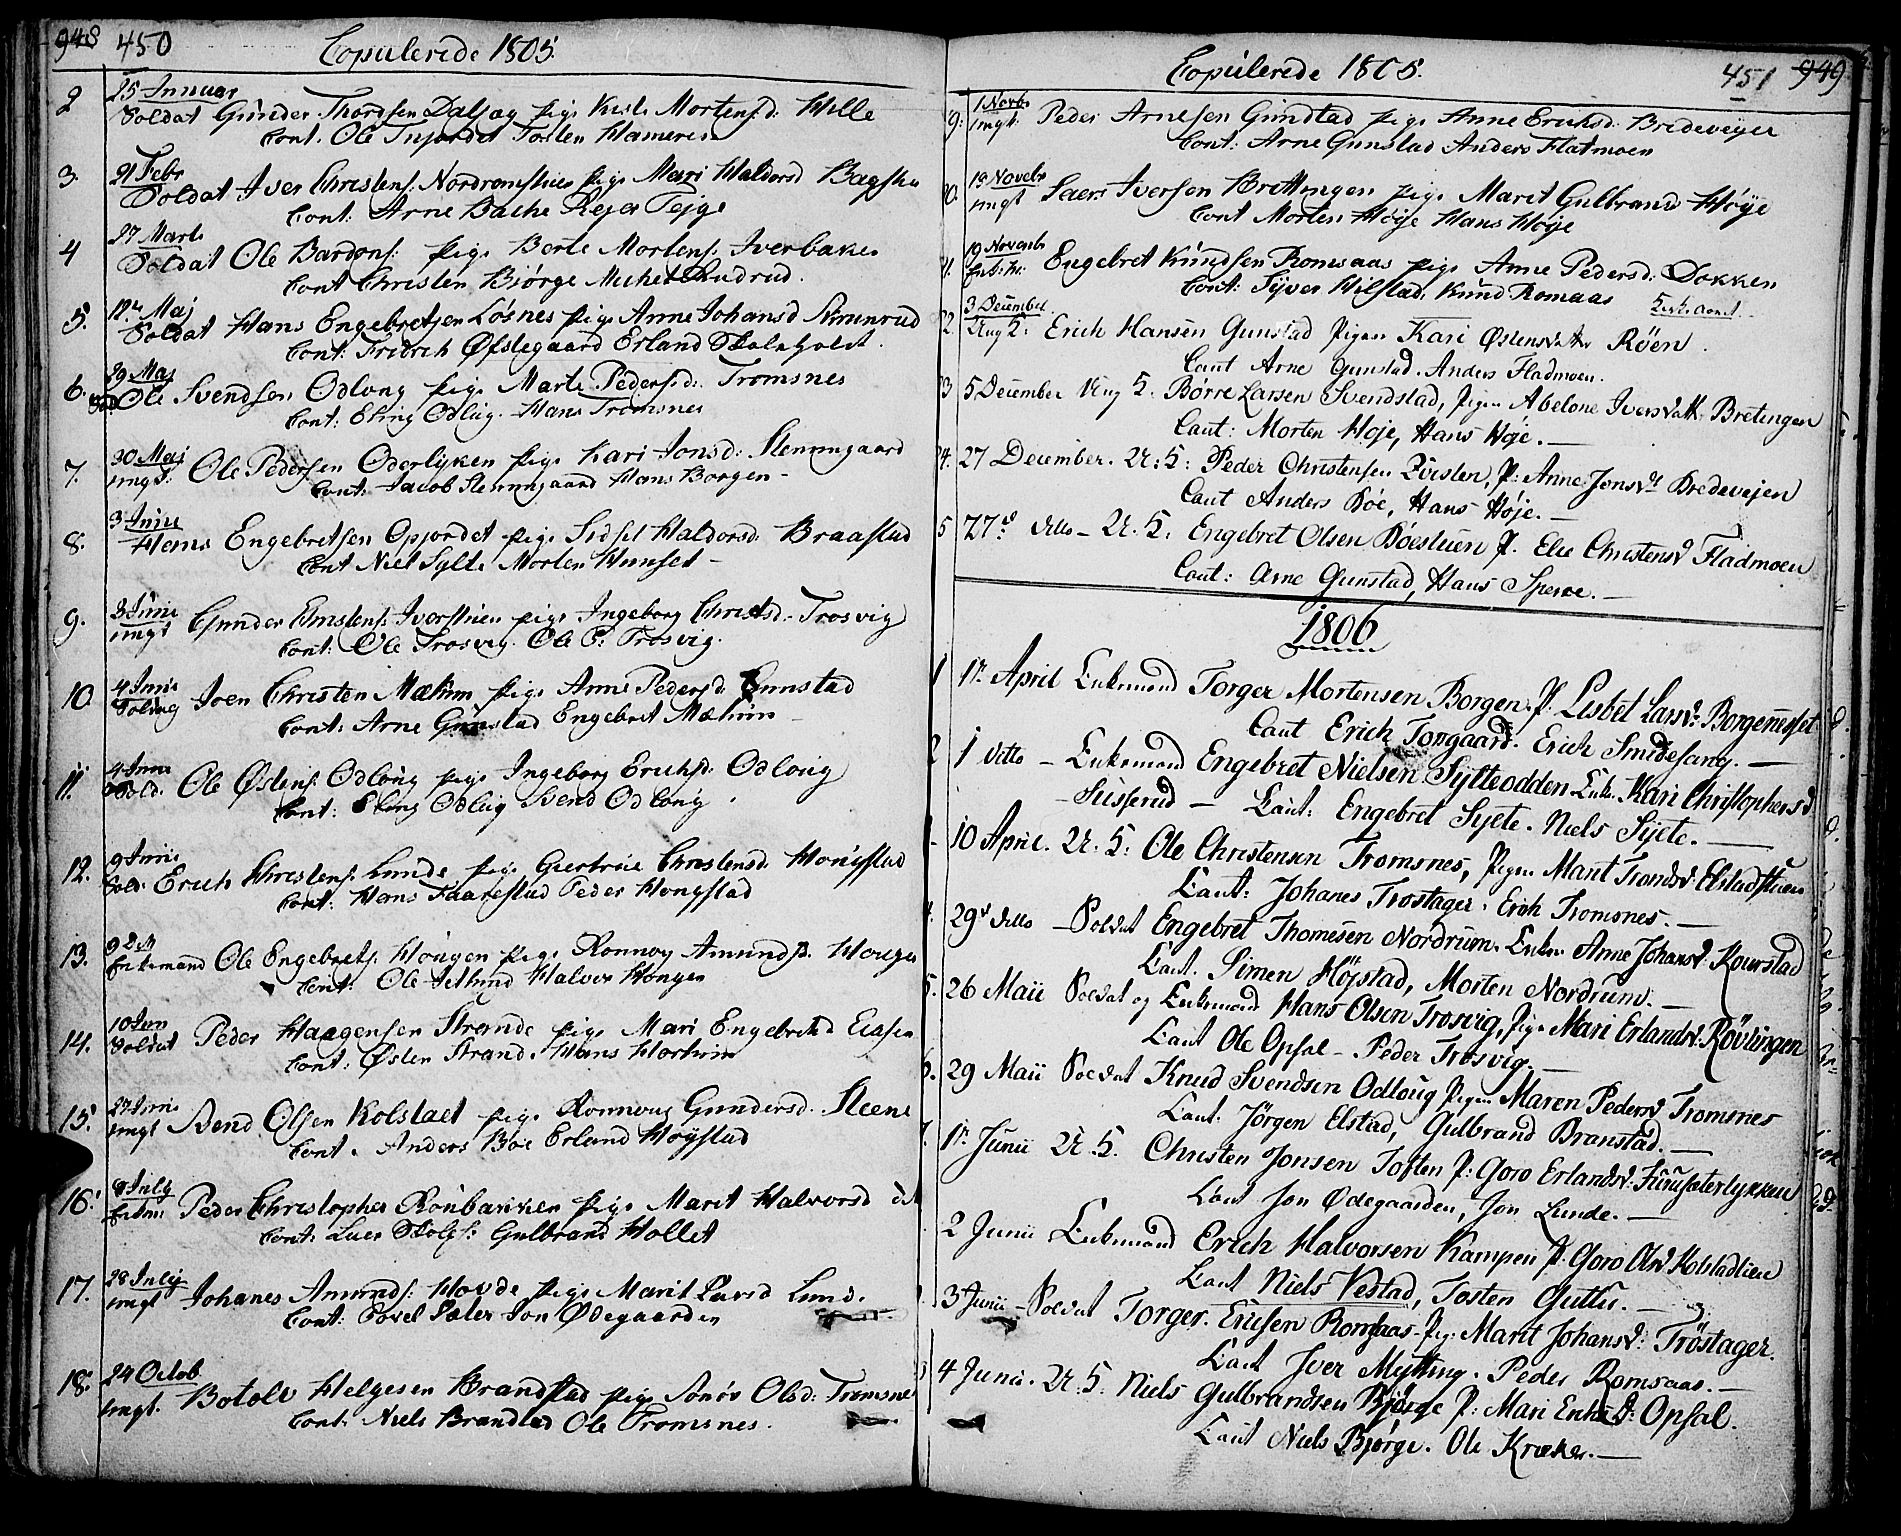 948 450 Copulerede 1805.
2 25 Januar
Soldat Gunder Thordsen Daljag pige Mortensd: Hille
Cont. Ole Tosten Hameren
3. 21 Febr
Soldat Iver Christens: Nordrumstuen pige Mari Haldorsd
Cont: Arne Bache
4 27 Marts
Soldat Ole Bardons: pige Berte Mortens: Iverbaken
Cont Christen Bjørge Michel Rudrud.
5. 12te Maj
Soldat Hans Engebretsen Løsnes pige Anne Johansd
Cont: Fridrich Øfslegaard Erland Skaleholdt.
6. 29 Maj
Sold Ole Svendsen Odloug pige Marte Pedersd: Tromsnes
Cont: Eling Odlug. Hans Tromsnes
7. 30 Maj
ungk: Ole Pedersen Oderlyken pige Kari Jonsd: Stenumgaard
Cont: Jacob Stenumgaard Hans Borgen -
8. 3 Junii
Hans Engebretsen Opjordet pige Sidsel Haldorsd: Braastad
Cont Niel Sylte Morten Hunset -
9. 3 Junii
ungk Gunder Iverstuen pige Ingeborg Christd: Trosvig
Cont: Ole Trosvig. Ole P: Trosvig.
10. 4 Junii
Joen Christen Mæhum pige Anne Pedersd: Gunstad
Cont: Arne Gunstad Engebret Mæhum -
11. 4 Juni
Sold: Ole Østens: Odloug pige Ingeborg Erichsd: Odloug
Cont: Eling Odlug Svend Odloug.
12. 9 Junii
Sold: Erich Christens: Lunde pige Giertrue Christensd: Hougstad
Cont: Hans Faarestad Peder Hougstad
13. 9 D:
Enkemand Ole Engebrets: Hougen pige Ronnoug Amundsd: Hougen
Cont: Ole Halvor Hougen
14. 10 Juni
Soldat Peder Haagensen Strande pige Mari Engebretsd
Cont: Østen Strand. Hans
15. 27 Juni
ungk Svend Olsen Kolslaet pige Ronnoug Gundersd. Steene
Cont. Anders Boe Erland Høystad
16. 8 July
Enkem: Peder Christopher Rønbakken pige Marit Halvorsd
Cont: Lars Gulbrand Hollet
17. 28 July
ungk Johanes Amunds: Hovde pige Marit Larsd Lund.
Cont: Povel Jon Ødegaarden
18. 24 Octob
ungk. Botolv Helgesen Brandstad pige Sønøv Olsd: Tromsnes
Cont: Niels Brandstad Ole Tromsnes.
Copulerede 1805. 451 949
9. 1 Novb
ungk Peder Arnesen Gunstad pige Anne Erichsd. Bredeveyen
Cont: Arne Gunstad Anders Flatmoen
0. 13 Novebr
ungk Saern Iversen Brettingen pige Marit Gulbrand Høye
Cont Morten Høye Hans Høye
1. 19 Novemb
Enkem: Engebret Knudsen Romsaas pige Anne Pedersd: Dokken
Cont: Syver Hilstad, Knud Romaas
2. 3 December
Ung K: Erich Hansen Gunstad Pigen Kari Østensdatter Røen.
Caut Arne Gunstad. Anders Fladmoen.
3 5 December Ung K. Børre Larsen Svendstad, Pigen Abelone Iversdatt: Bretingen
Caut: Morten Høje, Hans Høje. —
4. 27 December. U: K: Peder Christensen P: Anne Jonsd: Bredevejen
Caut Anders Bóe, Hans Høje. —
5 27d ditto - U. K: Engebret Olsen Bóestuen P. Elie Christensd Fladmoen
Caut: Arne Gunstad, Hans Sperre. —
1806
1 1te April Enkemand Torger Mortensen Borgen, P: Lisbet Larsd: Borgeneset
Caut Erich Torgaard. Erich Smidesang. —
2 1 ditto - Enkemand Engebret Nielsen Sylteodden Enke Kari Christophersd
Susserud — Caut: Engebret Syete. Niels Syete. —
10 April. U. K: Ole Christensen Tromsnes, Pigen Marit Tromdsd: Elstadstuen
Caut: Johanes Trostager. Erich Tromsnes. —
4. 29d ditto - Soldat Engebret Thomesen Nordrum. Enke Anne Johansd: Kourstad
Caut. Simen Höjstad, Morten Nordrum. —
5. 26 Maii Soldat og Enkemand Hans Olsen Trosvig, Pige Mari Erlandsd: Røvlingen
Caut Ole Opsal - Peder Trosvig. —
6. 29 Maii Soldat Knud Svendsen Odloug Pigen Maren Pedersd Tromsnes
Caut. Jörgen Elstad, Gulbrand Branstad. —
7. 1te Junii U. K. Christen Jonsen Toften P: Goro Erlandsd: Furusæterlykken
Caut Jon Ødegaarden, Jon Lunde. —
2 Junii Enkemand Erich Halvorsen Kampen P: Goro Olsd Kolstadlien
Caut Niels Vestad, Tosten Guttu. —
3 Junii - Soldat Torger. Ericsen Romsaas Pige: Marit Johansd: Tröstager.
Caut Iver Mytting. Peder Romsaas. —
4 Junii. U. K: Niels Gulbrandsen Bjørge P: Mari Opsal.
Caut Niels Bjørge. Ole Kræke. —